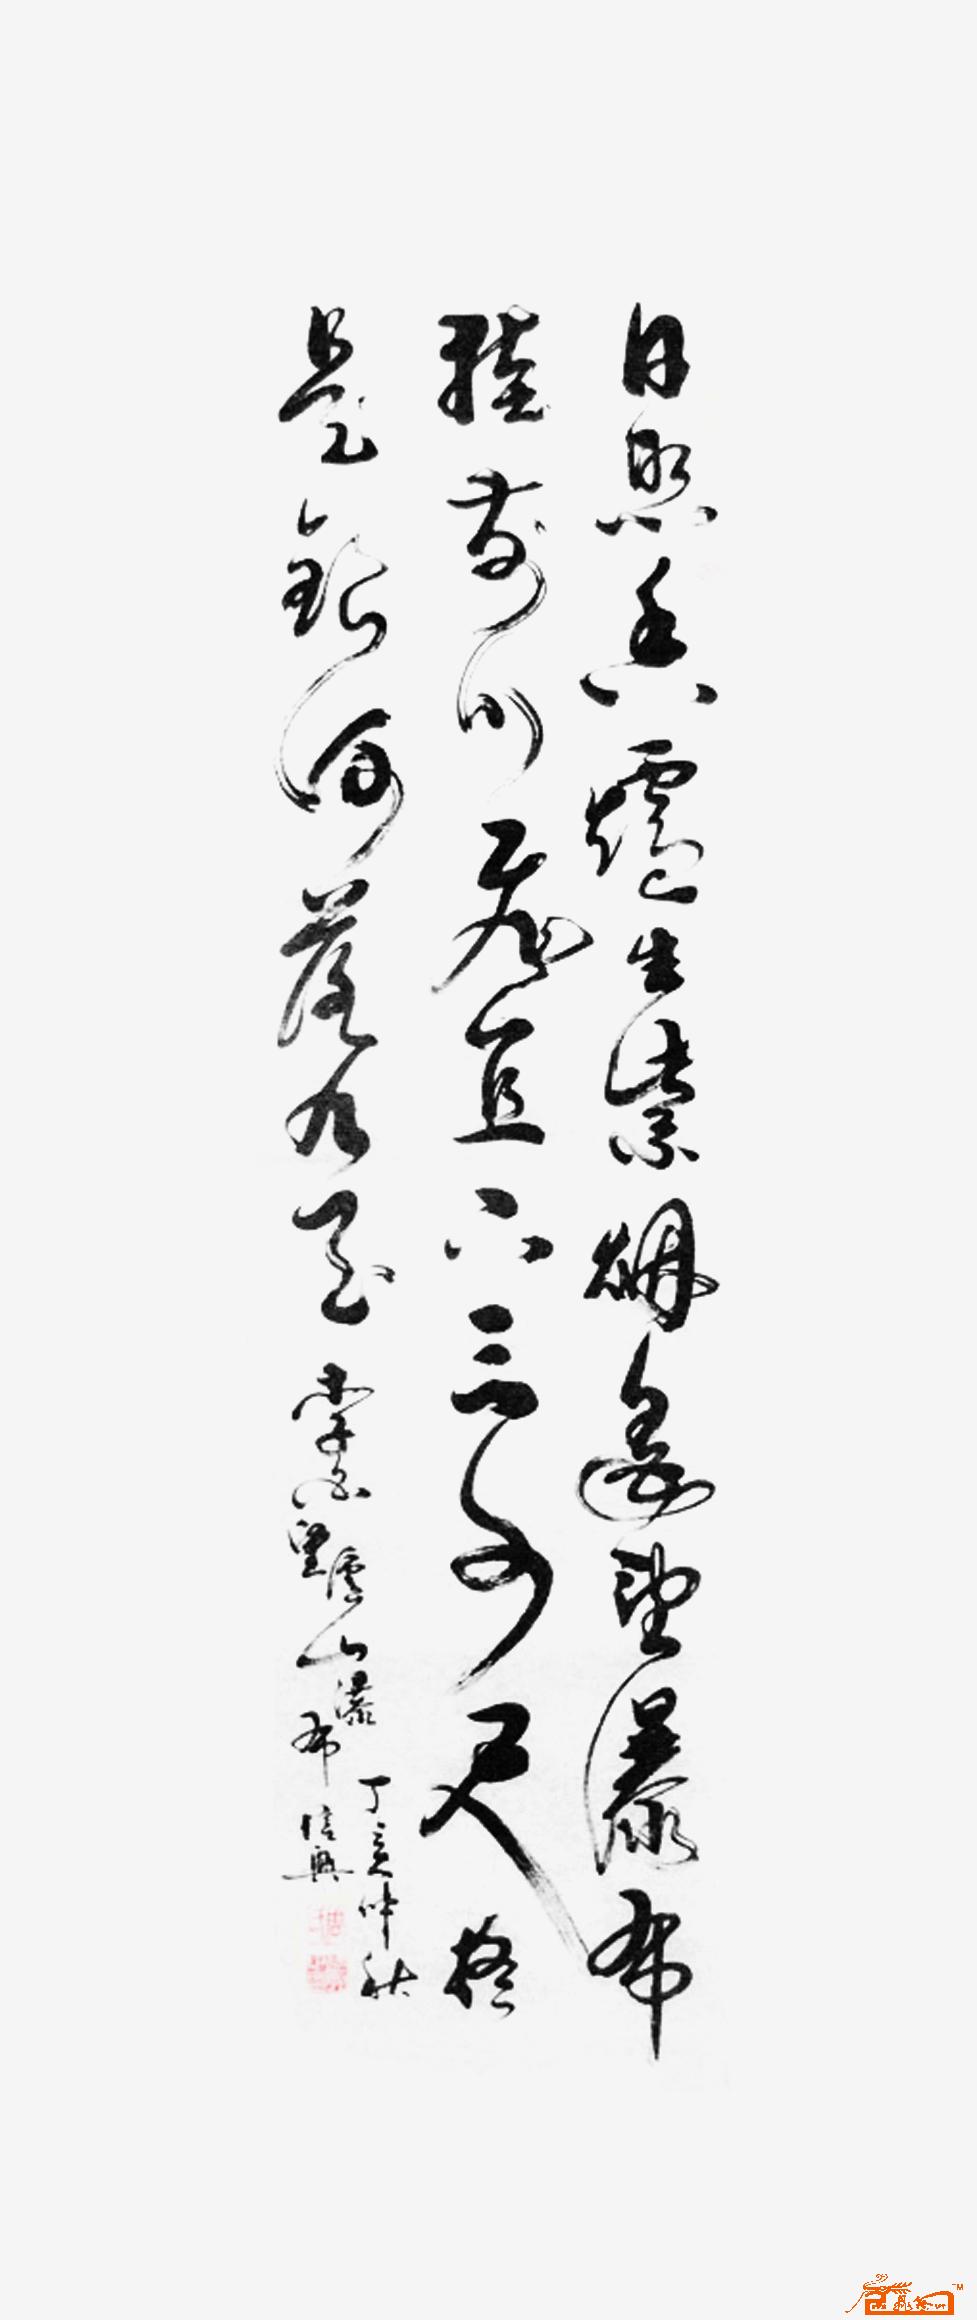 日照香爐生紫烟遙望瀑布
挂前川飛直下三千尺疑
是銀河落九天
李白望廬山瀑布
丁亥仲秋
信興